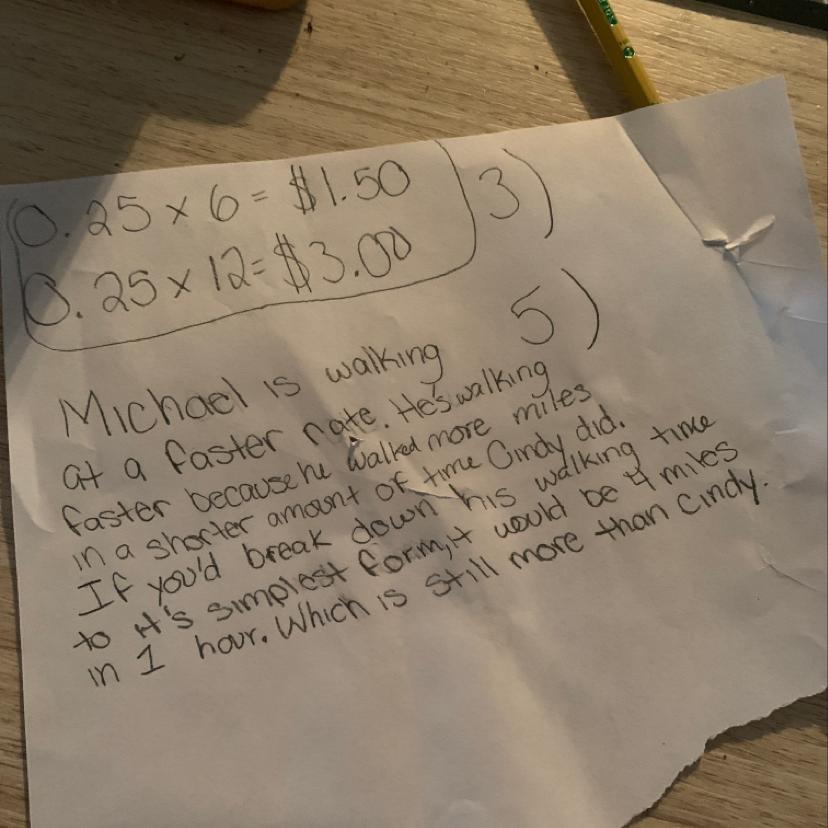 0.25 x 6 = $1.50
3)
0.25 x 12 = $3.00
5)
Michael is walking
at a faster rate. He's walking
faster because he walked more miles
in a shorter amount of time Cindy did.
If you'd break down his walking time
to it's simplest form, it would be 4 miles
in 1 hour. Which is still more than Cindy.